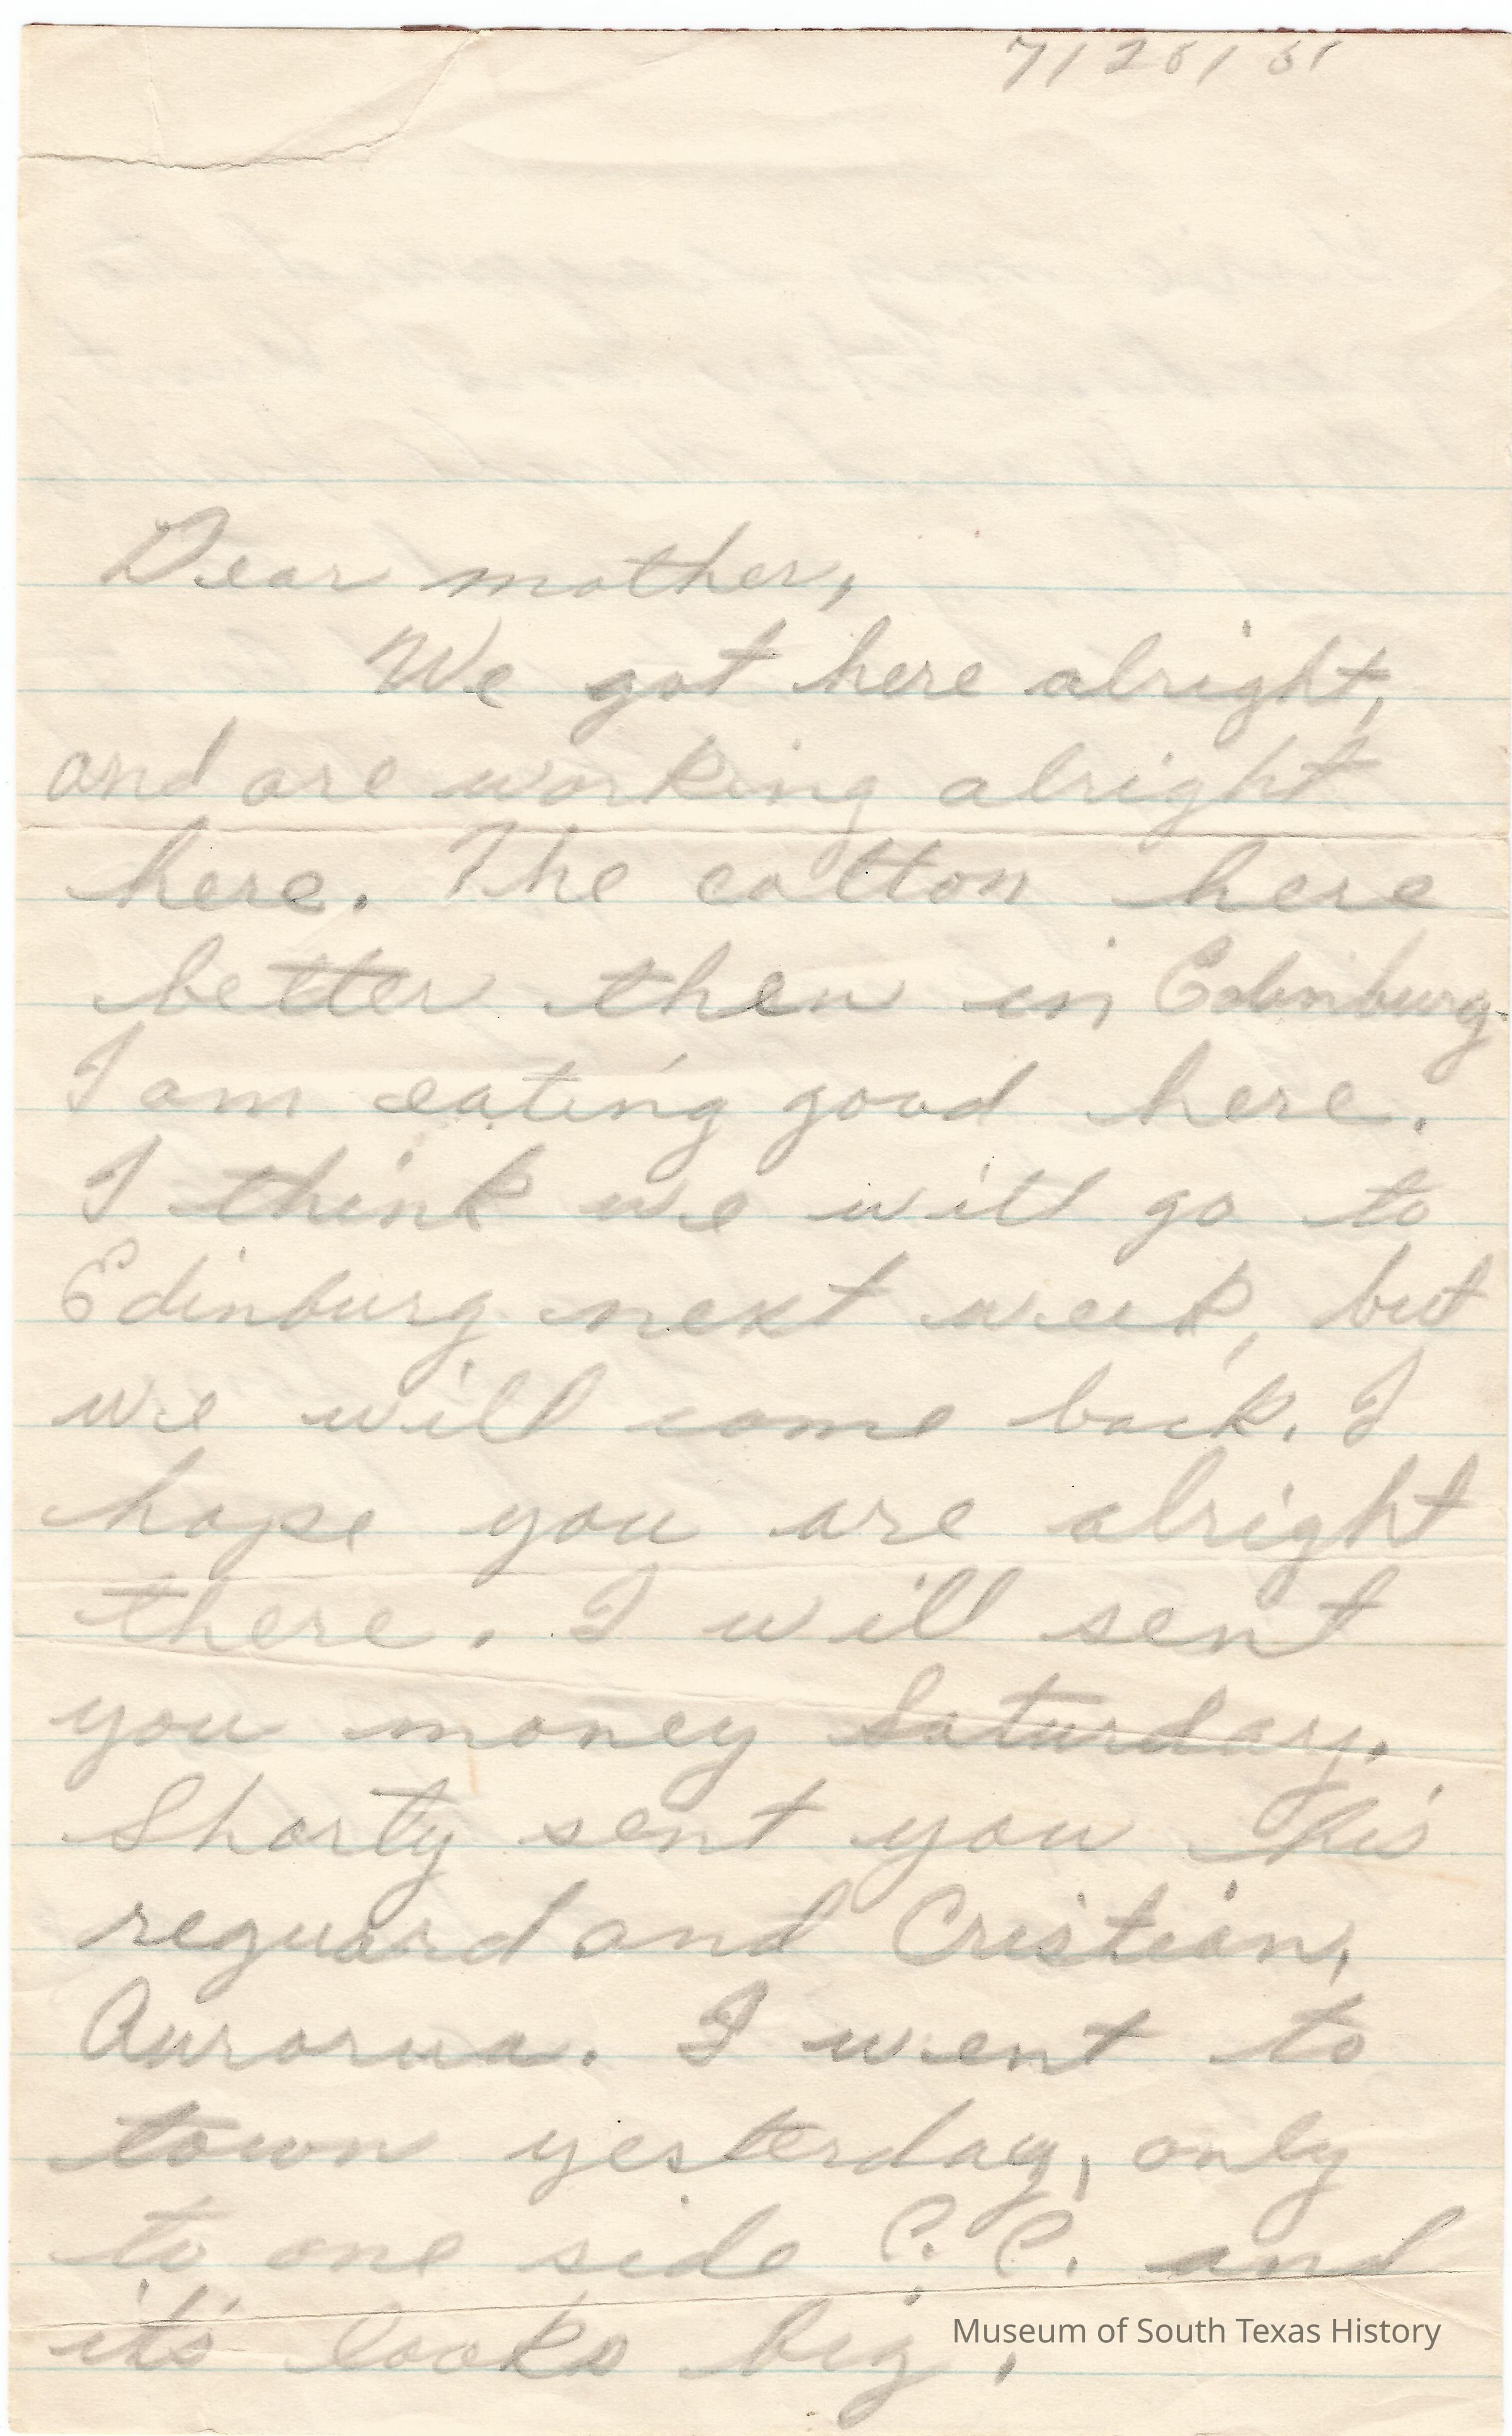 7/26/51
Dear mother,
We got here alright,
and are working alright
here. The cotton here
better then in Edinburg.
I am eating good here.
I think we will go to
Edinburg next week, but
we will come back. I
hope you are alright
there. I will sent
you money Saturday.
Shorty sent you his
reguard and Cristian,
Aurorua. I went to
town yesterday, only
to one side C. C. and
it's looks big.
Museum of South Texas History